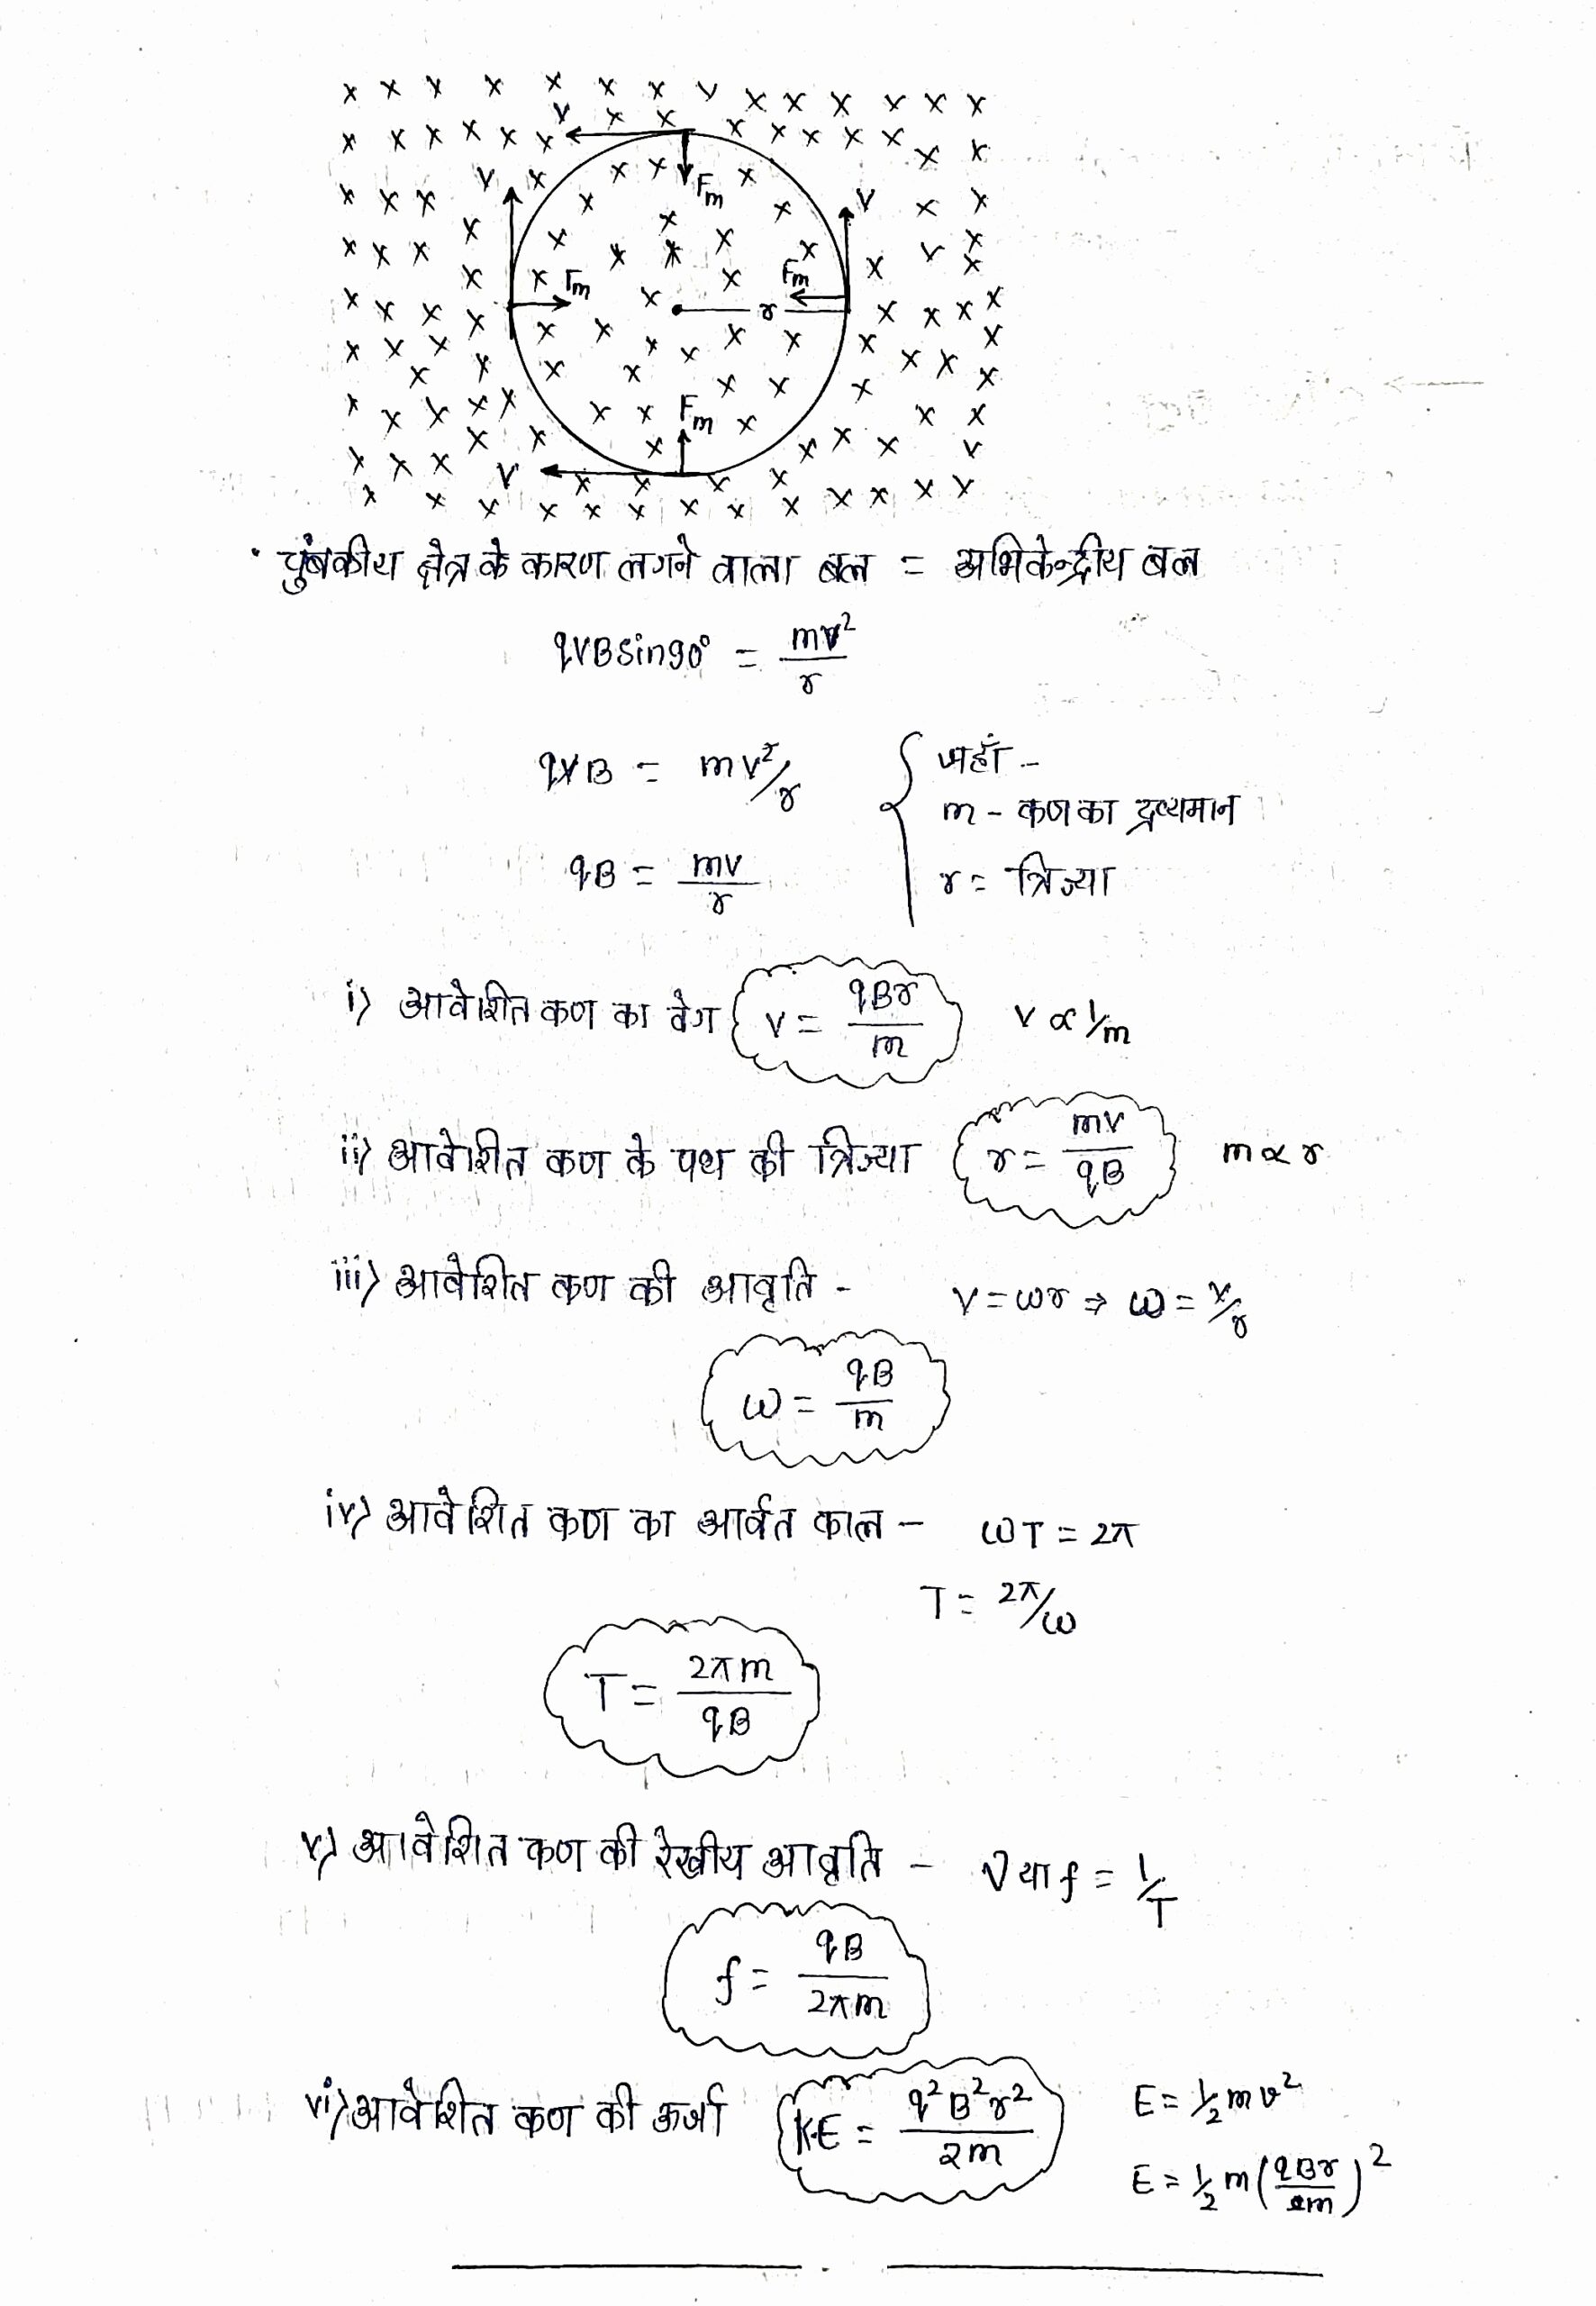 x x x x x x x v x x x x x x
v
Fm
V
V
Fm
Fm
r
Fm
V
• चुंबकीय क्षेत्र के कारण लगने वाला बल = अभिकेन्द्रीय बल
qVBsin90° = mv²/r
qVB = mv²/r
{ जहाँ -
m - कण का द्रव्यमान
qB = mv/r
r = त्रिज्या
i) आवेशित कण का वेग v = qBr/m v ∝ 1/m
ii) आवेशित कण के पथ की त्रिज्या r = mv/qB m ∝ r
iii) आवेशित कण की आवृति - v = ωr ⇒ ω = v/r
ω = qB/m
iv) आवेशित कण का आर्वत काल - ωT = 2π
T = 2π/ω
T = 2πm/qB
v) आवेशित कण की रेखीय आवृति - ν या f = 1/T
f = qB/2πm
vi) आवेशित कण की ऊर्जा K.E = q²B²r²/2m E = 1/2 mv²
E = 1/2 m(qBr/2m)²